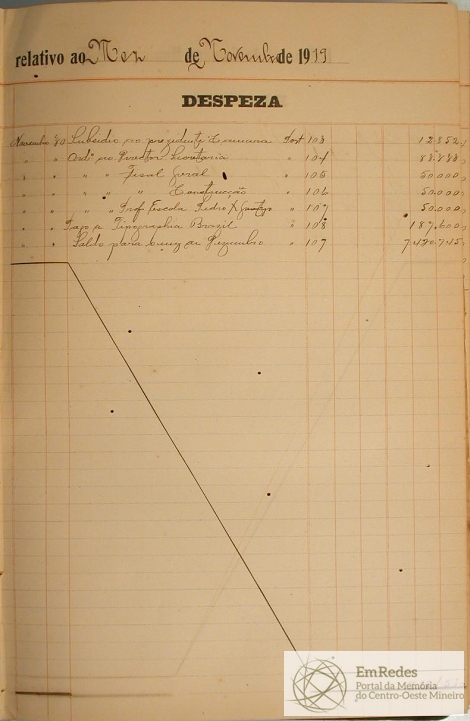 relativo ao Mez de Novembro de 1919
DESPEZA
Novembro 30 Subsidio ao prezidente Camara Port 103
" " Ord° ao Director Secretaria " 104
" " " " Fiscal Geral " 105 50.000
" " " " " Construcção " 106 50.000
" " " " Prof. Escola Pedro X " 107 50.000
" " Pago a Tipographia Brazil " 108 187.600
" " Saldo para o mez de Dezembro " 107
EmRedes
Portal da Memória
do Centro-Oeste Mineiro